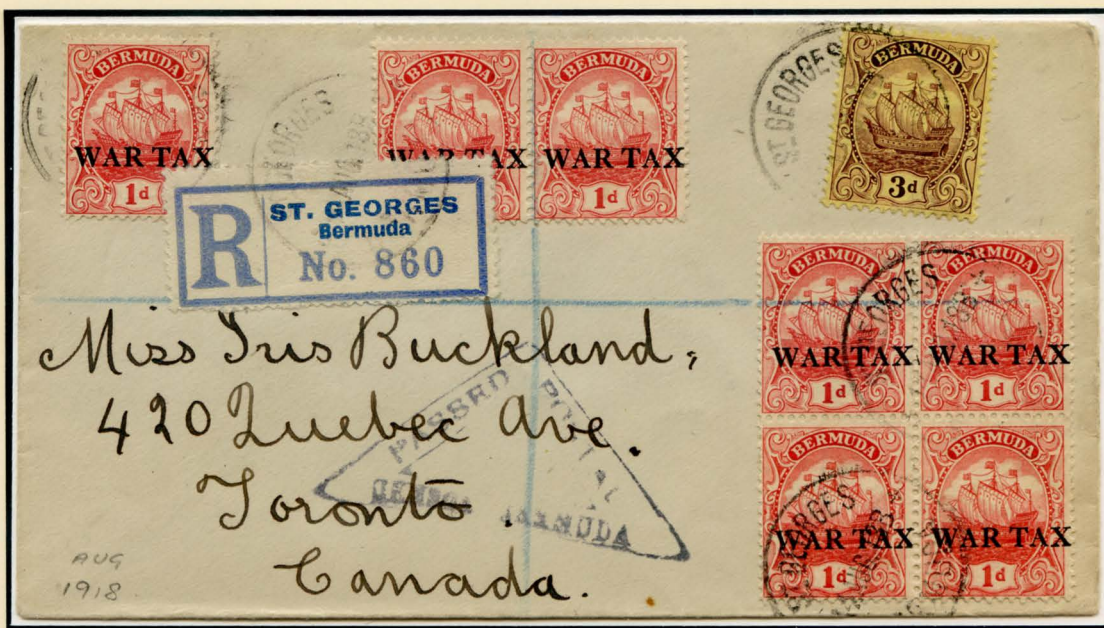 BERMUDA
WAR TAX
1d
BERMUDA
WAR TAX
1d
BERMUDA
WAR TAX
1d
ST. GEORGES
BERMUDA
3d
GEORGES
AUG 18
R
ST. GEORGES
Bermuda
No. 860
BERMUDA
WAR TAX
1d
BERMUDA
WAR TAX
1d
GEORGES
BERMUDA
WAR TAX
1d
BERMUDA
WAR TAX
1d
GEORGES
Miss Iris Buckland,
420 Quebec Ave.
Toronto.
Canada.
PASSED POSTAL
BERMUDA
AUG
1918